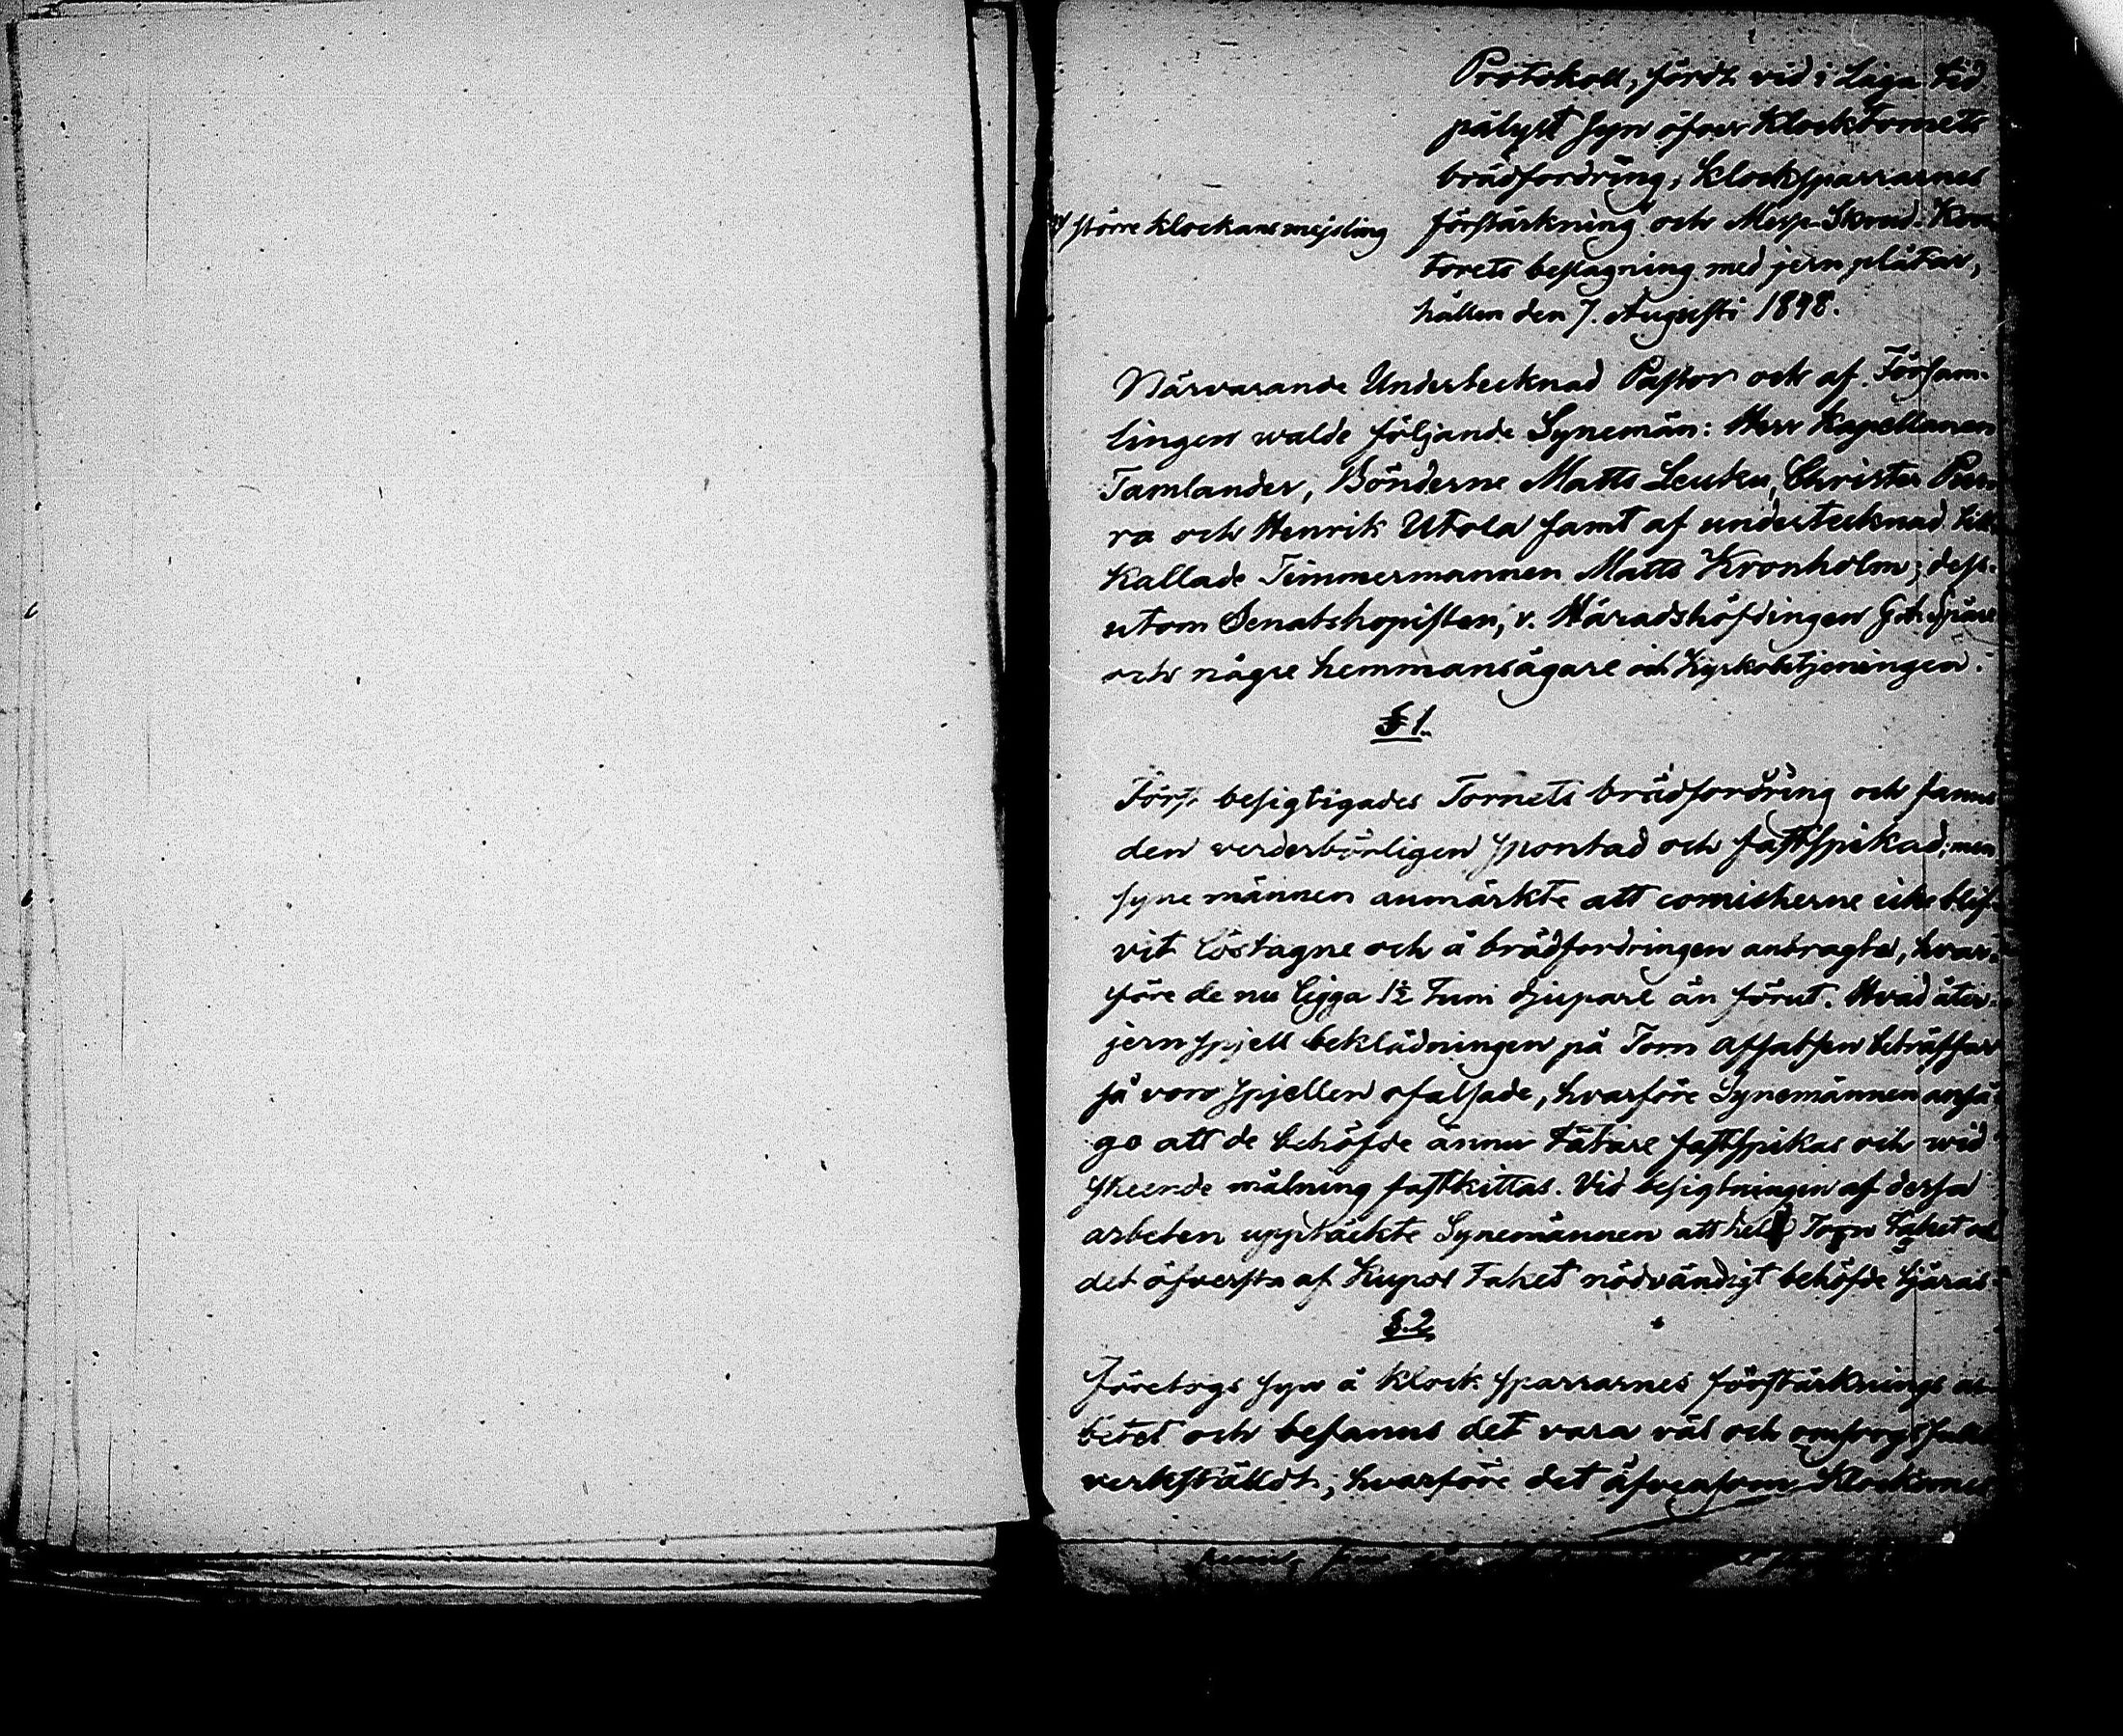 Protokoll, fördt vid i Laga tid
pålyst Syn öfver Klocktornets
brädfordring, Klocksparrarnes
större klockans mejsling
förstärkning och Messe-Skrud-Kon-
torets beslagning med jern plåtar,
hållen den 7. Augusti 1848.
Närvarande Undertecknad Pastor och af Försam-
lingen walde följande Synemän: Herr Kapellanen
Tamlander, Bönderne Matts Leuku, Christer Pur-
ra och Henrik Utola samt af undertecknad till-
kallade Timmermannen Matts Kronholm; dess-
utom Senatskopisten, v. Häradshöfdingen
och någre hemmansägare och Kyrkobetjeningen.
§ 1.
Först besigtigades Tornets brädfordring och fanns
den vederbörligen spontad och fastspikad; men
syne männen anmärkte att cornicherne icke blif-
vit löstagne och å brädfordringen anbragte, hvar-
före de nu ligga 1½ Tum djupare än förut. Hvad åter
jernspjell beklädningen på Torn afsatsen beträffar
så voro spjellen ofalsade, hvarföre Synemännen anså-
go att de behöfde ännu tätare fastspikas och wid
skeende målning fastkittas. Vid besigtningen af dessa
arbeten upptäckte Synemännen att hela Torn Taket och
det öfversta af Kupol Taket nödvändigt behöfde tjäras
§.2.
Företogs syn å Klock sparrarnes förstärknings ar-
betet och befanns det vara väl och omsorgsfullt
verkställdt, hvarföre det äfvensom Klockornes